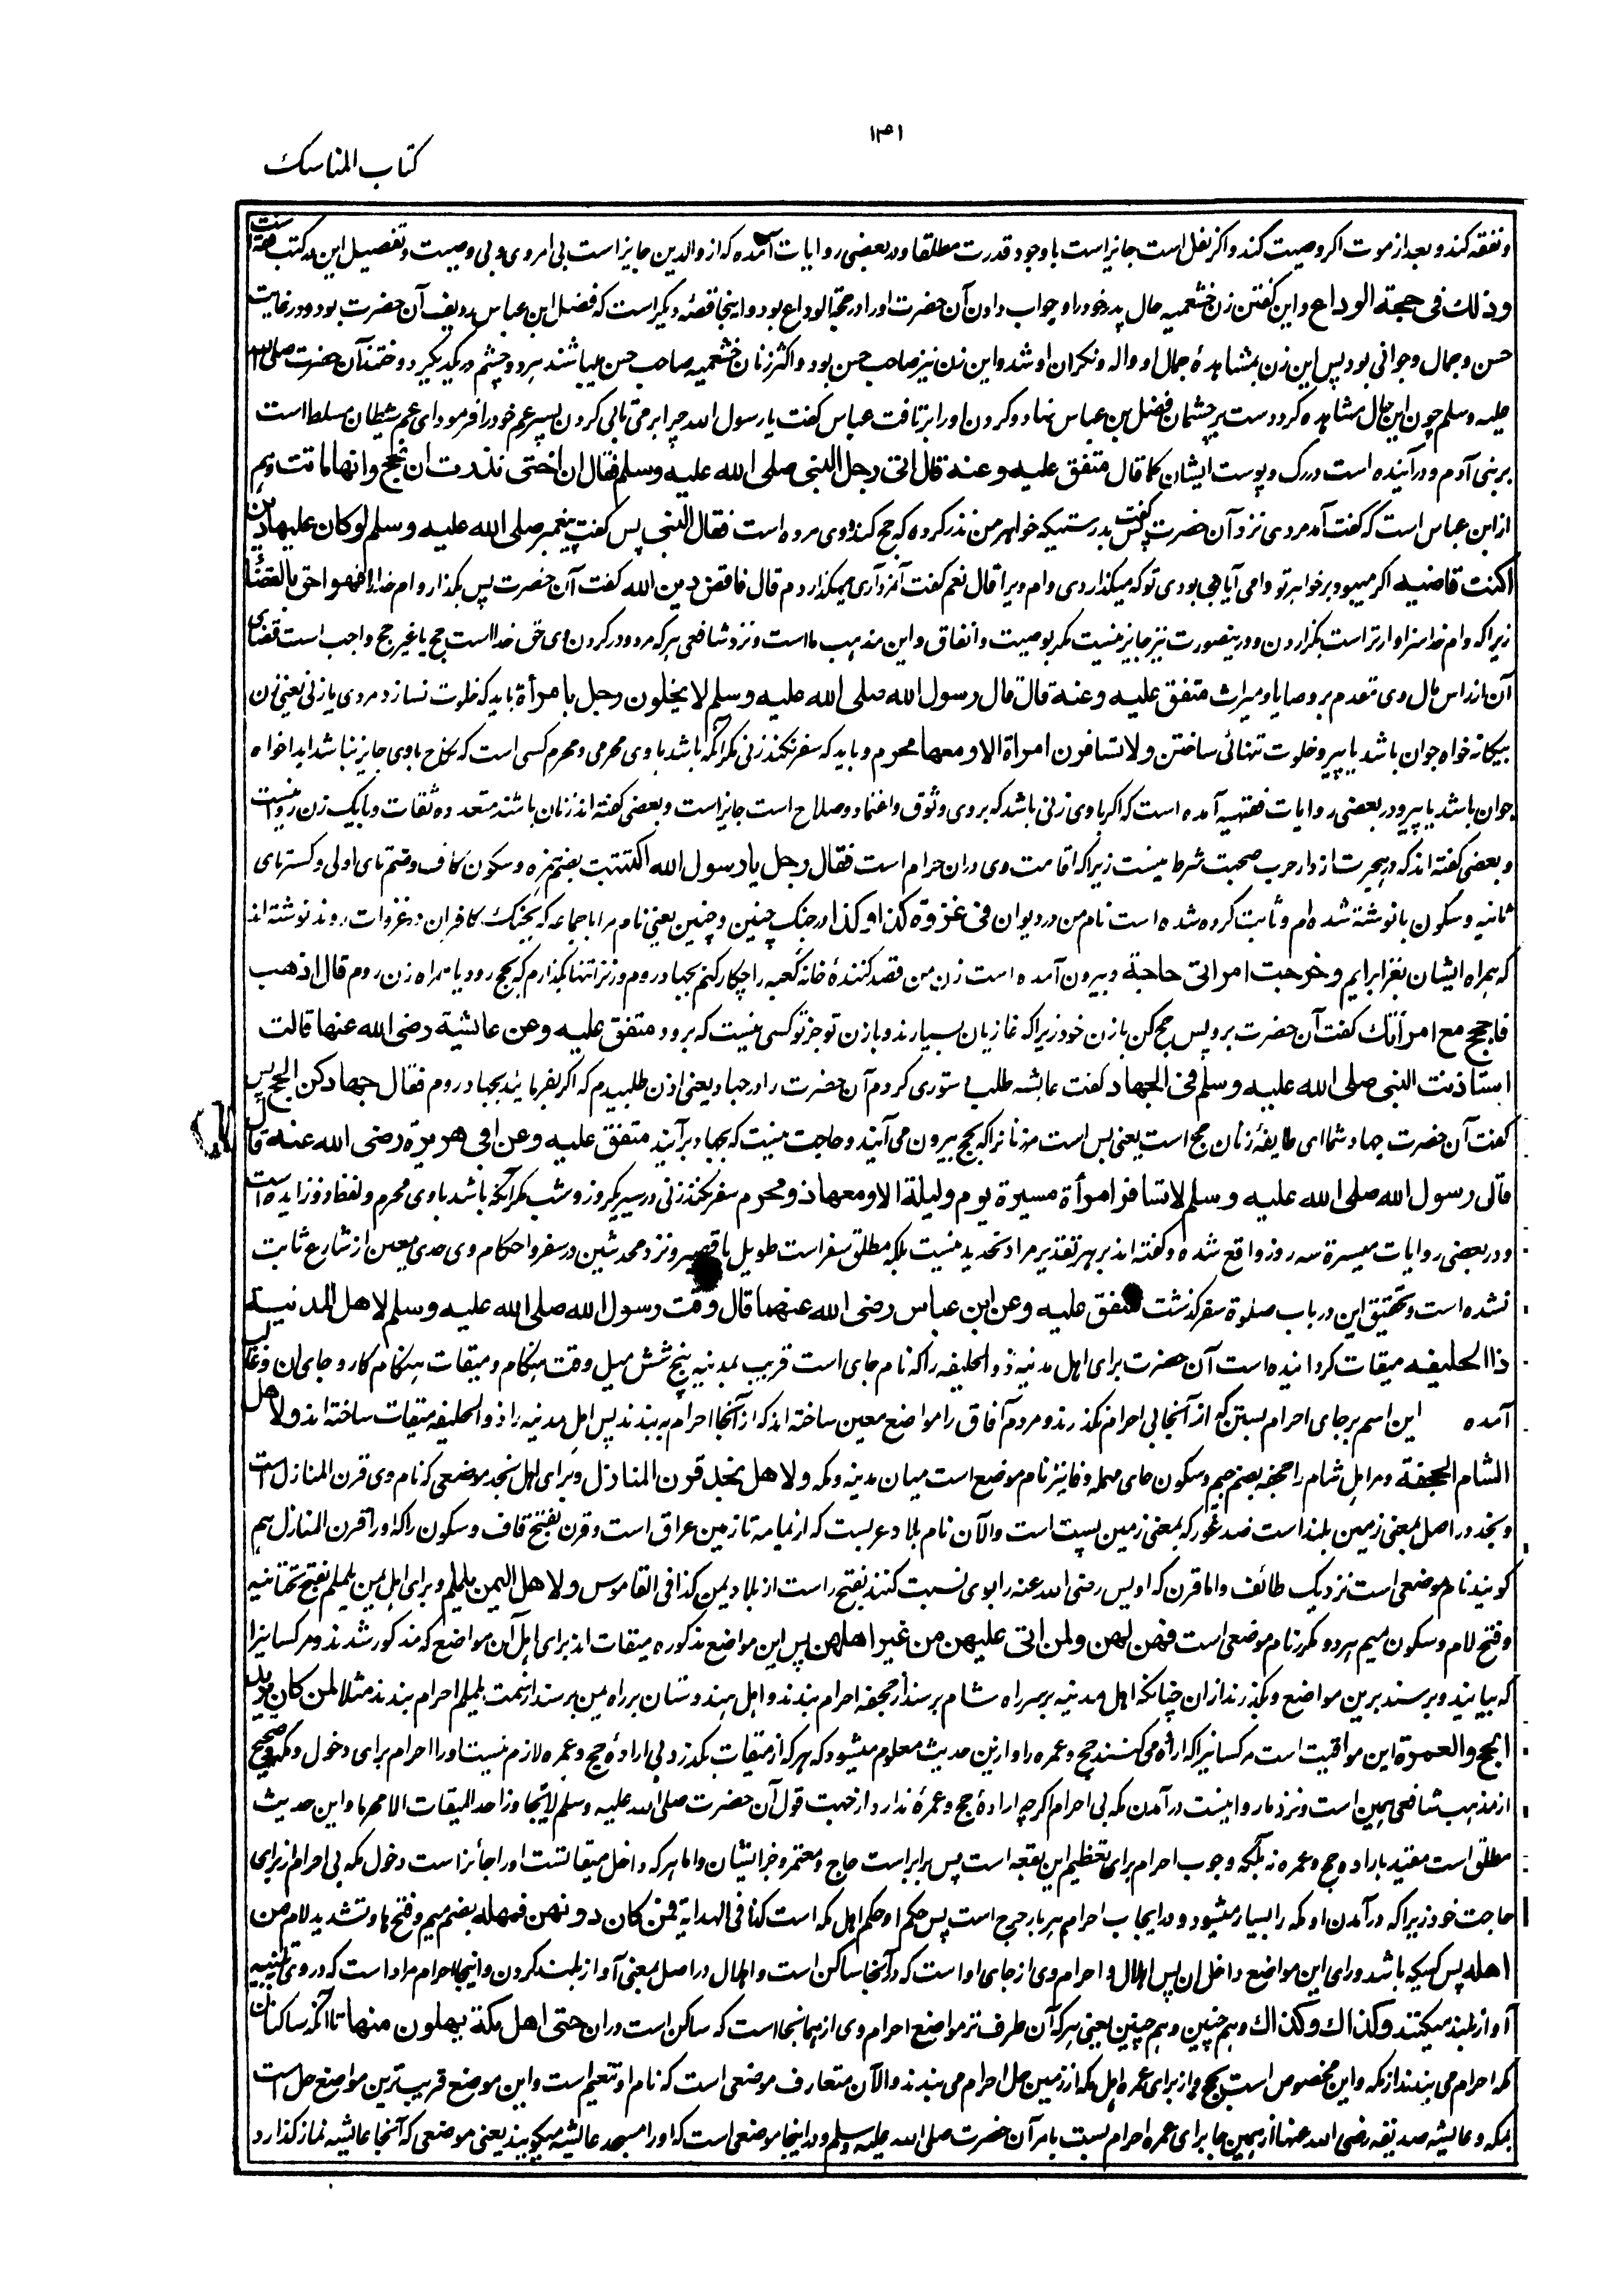 ۱۳۱
کتاب المناسک
و نفقه کند و بعد از موت اکر وصیت کند و اکر نفل است جایز است با وجود قدرت مطلقا و در بعضی روایات آمده که از والدین جایز است بی امر وی و بی وصیت و تفصیل این در کتب فقه است
وذلك فی حجة الوداع و این کفتن زن خثعمیه حال پدر خود را و جواب دادن آن حضرت او را در حجة الوداع بود و اینجا قصهٔ دیکر است که فضل ابن عباس ردیف آن حضرت بود و در غایت
حسن و جمال و جوانی بود پس این زن بمشاهدهٔ جمال او واله و نکران او شد و این زن نیز صاحب حسن بود و اکثر زنان خثعمیه صاحب حسن میباشند هر دو چشم در یکدیکر دوختند آن حضرت صلی الله
علیه وسلم چون این حال مشاهده کرد دست بر چشمان فضل بن عباس نهاد و کردن او را برتافت عباس کفت یا رسول الله چرا برمی تابی کردن پسر عم خود را فرمود ای عم شیطان مسلط است
بر بنی آدم و در آینده است در رک و پوست ایشان کما قال متفق علیه وعنه قال اتی رجل النبی صلی الله علیه وسلم فقال ان اختی نذرت ان تحج وانها ماتت وهم
از ابن عباس است که کفت آمد مردی نزد آن حضرت پس کفت بدرستیکه خواهر من نذر کرده که حج کند و وی مرده است فقال النبی پس کفت پیغمبر صلی الله علیه وسلم لوکان علیها دین
اکنت قاضیه اکر میبود بر خواهر تو وامی آیا می بودی تو که میکذاردی وام ویرا قال نعم کفت آنمرد آری میکذاردم قال فاقض دین الله کفت آن حضرت پس بکذار وام خدا را فهو احق بالقضاء
زیرا که وام خدا سزاوارتر است بکزاردن و درینصورت نیز جایز نیست مکر بوصیت و انفاق و این مذهب ما است و نزد شافعی هر که مرد و در کردن وی حق خدا است حج یا غیر حج واجب است قضای
آن از راس مال وی مقدم بر وصایا و میراث متفق علیه وعنه قال قال رسول الله صلی الله علیه وسلم لا یخلون رجل بامرأة باید که خلوت نسازد مردی با زنی یعنی زن
بیکانه خواه جوان باشد یا پیر و خلوت تنهائی ساختن ولا تسافرن امرأة الا ومعها محرم و باید که سفر نکند زنی مکر آنکه باشد با وی محرمی و محرم کسی است که نکاح با وی جایز نباشد ابدا خواه
جوان باشد یا پیر و در بعضی روایات فقهیه آمده است که اکر با وی زنی باشد که بر وی وثوق و اعتماد و صلاح است جایز است و بعضی کفته اند زنان باشند متعدده ثقات و با یک زن روا نیست
و بعضی کفته اند که در هجرت از دار حرب صحبت شرط نیست زیرا که اقامت وی دران حرام است فقال رجل یا رسول الله اکتتبت بضم همزه و سکون کاف و ضم تای اولی و کسر تای
ثانیه و سکون با نوشته شده ام و ثابت کرده شده است نام من در دیوان فی غزوة کذا وکذا در جنک چنین و چنین یعنی نام مرا با جماعه که بجنک کافران در غزوات روند نوشته اند
که همراه ایشان بغزا برایم وخرجت امرأتی حاجة و بیرون آمده است زن من قصد کنندهٔ خانه کعبه را چکار کنم بجهاد روم و زنرا تنها بکذارم که بحج رود یا همراه زن روم قال اذهب
فاحجج مع امرأتك کفت آن حضرت برو پس حج کن با زن خود زیرا که غازیان بسیارند و با زن تو جز تو کسی نیست که برود متفق علیه وعن عائشة رضی الله عنها قالت
استاذنت النبی صلی الله علیه وسلم فی الجهاد کفت عایشه طلب دستوری کردم آن حضرت را در جهاد یعنی اذن طلبیدم که اکر بفرمایند بجهاد روم فقال جهادکن الحج پس
کفت آن حضرت جهاد شما ای طایفهٔ زنان حج است یعنی بس است مر زنانرا که بحج بیرون می آیند و حاجت نیست که بجهاد برآیند متفق علیه وعن ابی هریرة رضی الله عنه قال
قال رسول الله صلی الله علیه وسلم لا تسافر امرأة مسیرة یوم ولیلة الا ومعها ذو محرم سفر نکند زنی در سیر یکروز و شب مکر آنکه باشد با وی محرم و لفظ ذو زایده است
و در بعضی روایات مسیرة سه روز واقع شده و کفته اند بر هر تقدیر مراد تحدید نیست بلکه مطلق سفر است طویل یا قصیر و نزد محدثین در سفر و احکام وی حدی معین از شارع ثابت
نشده است و تحقیق این در باب صلوة سفر کذشت متفق علیه وعن ابن عباس رضی الله عنهما قال وقت رسول الله صلی الله علیه وسلم لاهل المدینة
ذا الحلیفه میقات کردانیده است آن حضرت برای اهل مدینه ذو الحلیفه را که نام جای است قریب بمدینه پنج شش میل وقت هنکام و میقات هنکام کار و جای ان و غالب
آمده این اسم بر جای احرام بستن که از آنجا بی احرام نکذرند و مردم آفاق را مواضع معین ساخته اند که از آنجا احرام به بندند پس اهل مدینه را ذو الحلیفه میقات ساخته اند ولاهل
الشام الجحفة و مر اهل شام را جحفه بضم جیم و سکون حای مهمله و فا نیز نام موضع است میان مدینه و مکه ولاهل نجد قرن المنازل و برای اهل نجد موضعی که نام وی قرن المنازل است
و نجد در اصل بمعنی زمین بلند است ضد غور که بمعنی زمین پست است والآن نام بلاد عربست که از یمامه تا زمین عراق است و قرن بفتح قاف و سکون را که او را قرن المنازل هم
کویند نام موضعی است نزدیک طائف و اما قرن که اویس رضی الله عنه را بوی نسبت کنند بفتح را است از بلاد یمن کذا فی القاموس ولاهل الیمن یلملم و برای اهل یمن یلملم بفتح تحتانیه
و فتح لام و سکون میم هر دو مکرر نام موضعی است فهن لهن ولمن اتی علیهن من غیر اهلهن پس این مواضع مذکوره میقات اند برای اهل آن مواضع که مذکور شدند و مر کسانیرا
که بیایند و برسند برین مواضع و بکذرند ازان چنانکه اهل مدینه بر سر راه شام برسند از جحفه احرام بندند و اهل هندوستان بر راه یمن برسند از سمت یلملم احرام بندند مثلا لمن کان یرید
الحج والعمرة این مواقیت است مر کسانیرا که اراده می کنند حج و عمره را و ازین حدیث معلوم میشود که هر که از میقات بکذرد بی ارادهٔ حج و عمره لازم نیست او را احرام برای دخول مکه و صحیح
از مذهب شافعی همین است و نزد ما روا نیست در آمدن مکه بی احرام اکر چه ارادهٔ حج و عمرهٔ ندارد از جهت قول آن حضرت صلی الله علیه وسلم لا یتجاوز احد المیقات الا محرما و این حدیث
مطلق است مقید باراده حج و عمره نه بلکه وجوب احرام برای تعظیم این بقعه است پس برابر است حاج و معتمر و جز ایشان و اما هر که داخل میقاتست او را جائز است دخول مکه بی احرام از برای
حاجت خود زیرا که در آمدن او مکه را بسیار میشود و در ایجاب احرام هر بار حرج است پس حکم او حکم اهل مکه است کذا فی الهدایة فمن کان دونهن فمهله بضم میم و فتح ها و تشدید لام من
اهله پس کسیکه باشد ورای این مواضع داخل ان پس اهلال و احرام وی از جای او است که در آنجا ساکن است و اهلال در اصل معنی آواز بلند کردن و اینجا احرام مراد است که در وی تلبیه
آواز بلند میکنند وکذاك وکذاك و هم چنین و هم چنین یعنی هر که آن طرف تر مواضع احرام وی از همانجا است که ساکن است دران حتی اهل مکة یهلون منها تا آنکه ساکنان
مکه احرام می بندند از مکه و این مخصوص است بحج و از برای عمره اهل مکه از زمین حل احرام می بندند و الآن متعارف موضعی است که نام او تنعیم است و این موضع قریب ترین مواضع حل است
بمکه و عایشه صدیقه رضی الله عنها از همین جا برای عمره احرام بست بامر آن حضرت صلی الله علیه وسلم و در اینجا موضعی است که او را مسجد عائشه میکویند یعنی موضعی که آنجا عائشه نماز کذارد